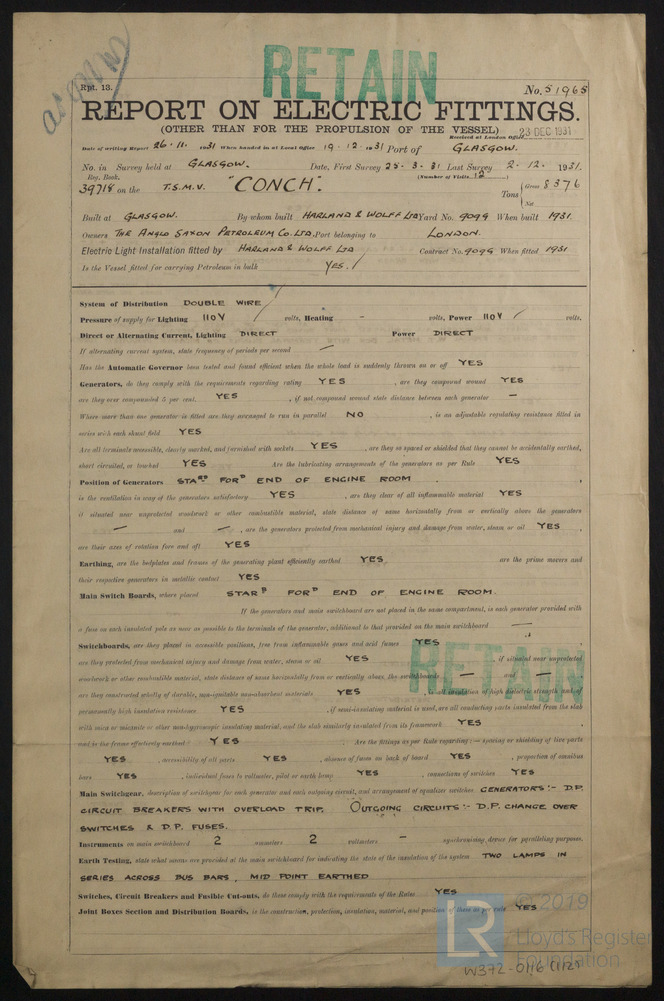 RETAIN
Rpt. 13.
No. 51965
REPORT ON ELECTRIC FITTINGS.
(OTHER THAN FOR THE PROPULSION OF THE VESSEL)
Received at London Office 23 DEC 1931
Date of writing Report 26.11. 1931 When handed in at Local Office 19.12.1931 Port of GLASGOW.
No. in Survey held at GLASGOW. Date, First Survey 25.3.31 Last Survey 2.12. 1931.
Reg. Book. (Number of Visits 12)
39718 on the T.S.M.V. "CONCH". Tons { Gross 8376
Net
Built at GLASGOW. By whom built HARLAND & WOLFF LTD Yard No. 909G When built 1931.
Owners THE ANGLO SAXON PETROLEUM CO. LTD. Port belonging to LONDON.
Electric Light Installation fitted by HARLAND & WOLFF LTD Contract No. 909G When fitted 1931
Is the Vessel fitted for carrying Petroleum in bulk YES.
System of Distribution DOUBLE WIRE
Pressure of supply for Lighting 110V volts, Heating - volts, Power 110V volts.
Direct or Alternating Current, Lighting DIRECT Power DIRECT
If alternating current system, state frequency of periods per second —
Has the Automatic Governor been tested and found efficient when the whole load is suddenly thrown on or off YES
Generators, do they comply with the requirements regarding rating YES , are they compound wound YES
are they over compounded 5 per cent. YES , if not compound wound state distance between each generator —
Where more than one generator is fitted are they arranged to run in parallel NO , is an adjustable regulating resistance fitted in
series with each shunt field YES
Are all terminals accessible, clearly marked, and furnished with sockets YES , are they so spaced or shielded that they cannot be accidentally earthed,
short circuited, or touched YES Are the lubricating arrangements of the generators as per Rule YES
Position of Generators STARD FORD END OF ENGINE ROOM
is the ventilation in way of the generators satisfactory YES , are they clear of all inflammable material YES
if situated near unprotected woodwork or other combustible material, state distance of same horizontally from or vertically above the generators
— and — , are the generators protected from mechanical injury and damage from water, steam or oil YES ,
are their axes of rotation fore and aft YES
Earthing, are the bedplates and frames of the generating plant efficiently earthed YES are the prime movers and
their respective generators in metallic contact YES
Main Switch Boards, where placed STARD FORD END OF ENGINE ROOM.
If the generators and main switchboard are not placed in the same compartment, is each generator provided with
a fuse on each insulated pole as near as possible to the terminals of the generator, additional to that provided on the main switchboard —
Switchboards, are they placed in accessible positions, free from inflammable gases and acid fumes YES ,
are they protected from mechanical injury and damage from water, steam or oil YES , if situated near unprotected
woodwork or other combustible material, state distance of same horizontally from or vertically above, the switchboards — and — ,
are they constructed wholly of durable, non-ignitable non-absorbent materials YES , is all insulation of high dielectric strength and of
permanently high insulation resistance YES , if semi-insulating material is used, are all conducting parts insulated from the slab
with mica or micanite or other non-hygroscopic insulating material, and the slab similarly insulated from its framework YES ,
and is the frame effectively earthed YES . Are the fittings as per Rule regarding:— spacing or shielding of live parts
YES , accessibility of all parts YES , absence of fuses on back of board YES , proportion of omnibus
bars YES , individual fuses to voltmeter, pilot or earth lamp YES , connections of switches YES
Main Switchgear, description of switchgear for each generator and each outgoing circuit, and arrangement of equaliser switches GENERATORS:- D.P.
CIRCUIT BREAKERS WITH OVERLOAD TRIP. OUTGOING CIRCUITS:- D.P. CHANGE OVER
SWITCHES & D.P. FUSES.
Instruments on main switchboard 2 ammeters 2 voltmeters — synchronising device for paralleling purposes.
Earth Testing, state what means are provided at the main switchboard for indicating the state of the insulation of the system TWO LAMPS IN
SERIES ACROSS BUS BARS, MID POINT EARTHED
Switches, Circuit Breakers and Fusible Cut-outs, do these comply with the requirements of the Rules YES
Joint Boxes Section and Distribution Boards, is the construction, protection, insulation, material, and position of these as per rule YES
RETAIN
LR © 2019
Lloyd's Register
Foundation
W372-0116 (1/2)